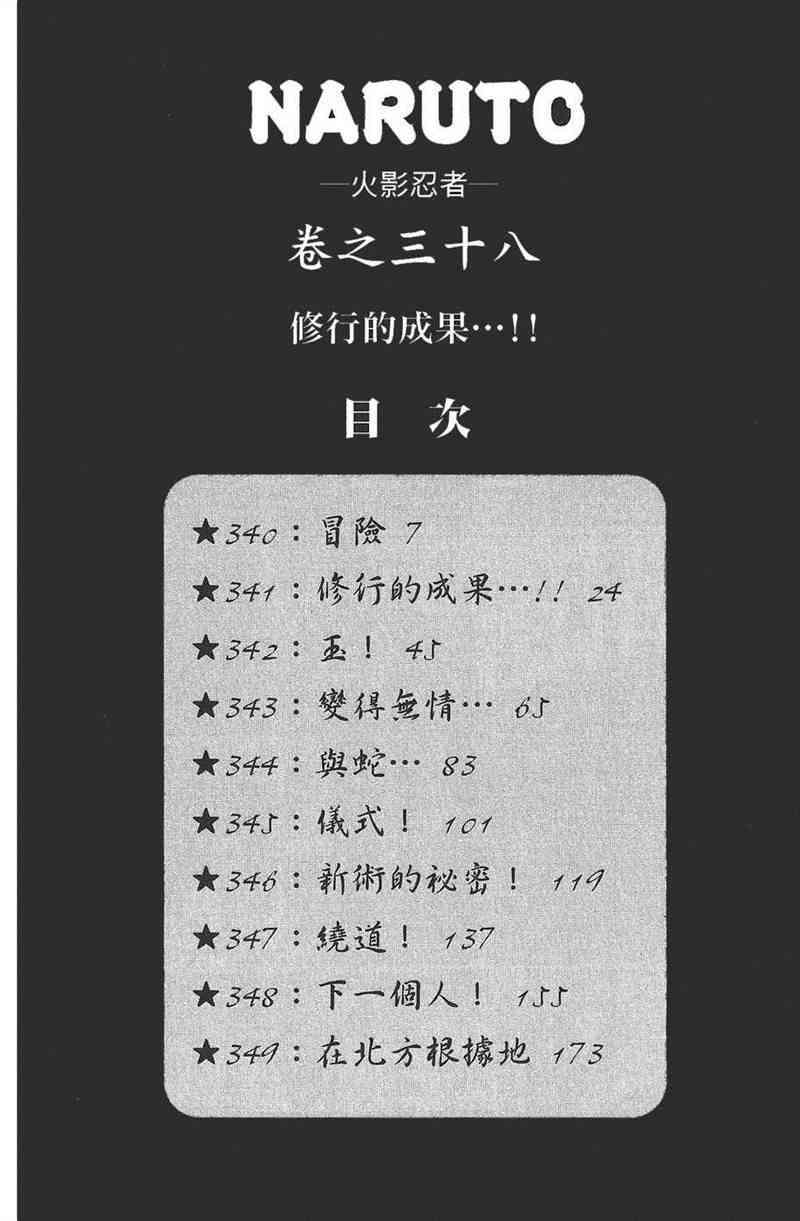 NARUTO
—火影忍者—
卷之三十八
修行的成果…!!
目 次
★340：冒險 7
★341：修行的成果…!! 24
★342：玉！ 45
★343：變得無情… 65
★344：與蛇… 83
★345：儀式！ 101
★346：新術的祕密！ 119
★347：繞道！ 137
★348：下一個人！ 155
★349：在北方根據地 173